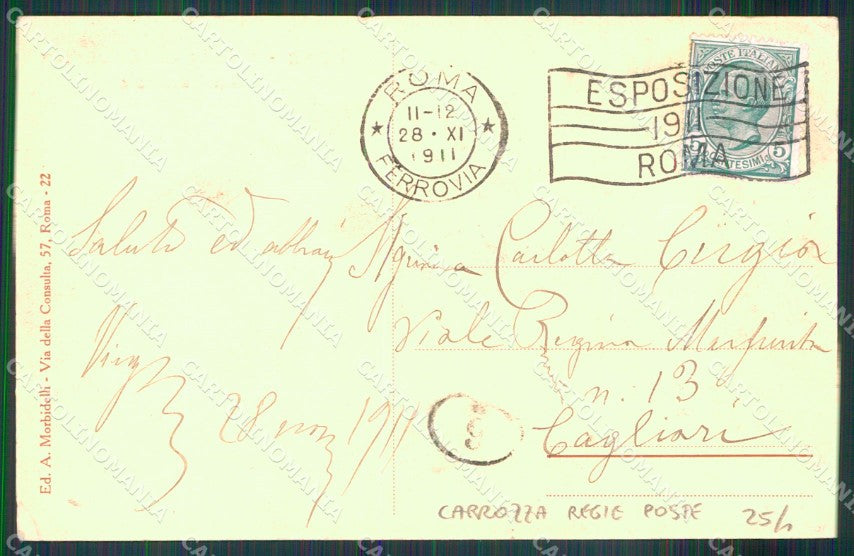 ROMA
11-12
28 · XI
1911
FERROVIA
ESPOSIZIONE
1911
ROMA
POSTE ITALIANE
5 CENTESIMI 5
Ed. A. Morbidelli - Via della Consulta, 57, Roma - 22
Saluti ed abbracci
28 1911
Carlotta
Viale Regina Margherita
n. 13
Cagliari
CARROZZA REGIE POSTE
CARTOLINOMANIA